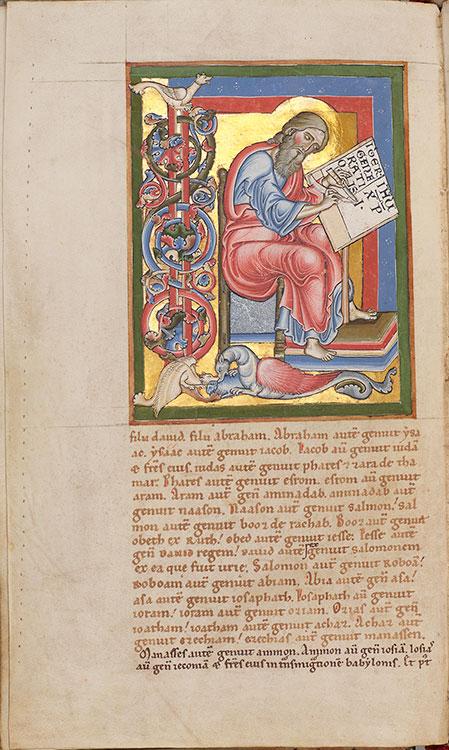 IBER
GENE XP
RATI
filii david. filii abraham. Abraham autē genuit ysa
ac. ysaac autē genuit iacob. Iacob aū genuit iudā
& frēs eius. iudas autē genuit phares & zara de tha
mar. Phares autē genuit esrom. esrom aū genuit
aram. Aram autē genꝰ aminadab. aminadab autē
genuit naason. Naason autē genuit salmon. sal
mon autē genuit booz de rachab. Booz autē genuit
obeth ex Ruth. obed autē genuit iesse. Iesse autē
genꝰ DAVID regem. david autē rex genuit salomonem
ex ea que fuit urie. Salomon autē genuit roboā.
Roboam autē genuit abiam. Abia autē genꝰ asa.
asa autē genuit iosaphath. Iosaphath aū genuit
ioram. ioram autē genuit oziam. Ozias autē genꝰ
ioatham. ioatham autē genuit achaz. Achaz autē
genuit ezechiam. ezechias autē genuit manassen.
Manasses autē genuit ammon. Ammon aū genꝰ iosiā. Iosias
aū genꝰ ieconiā & frēs eius in tnsmigtione babylonis. Et pꝰt